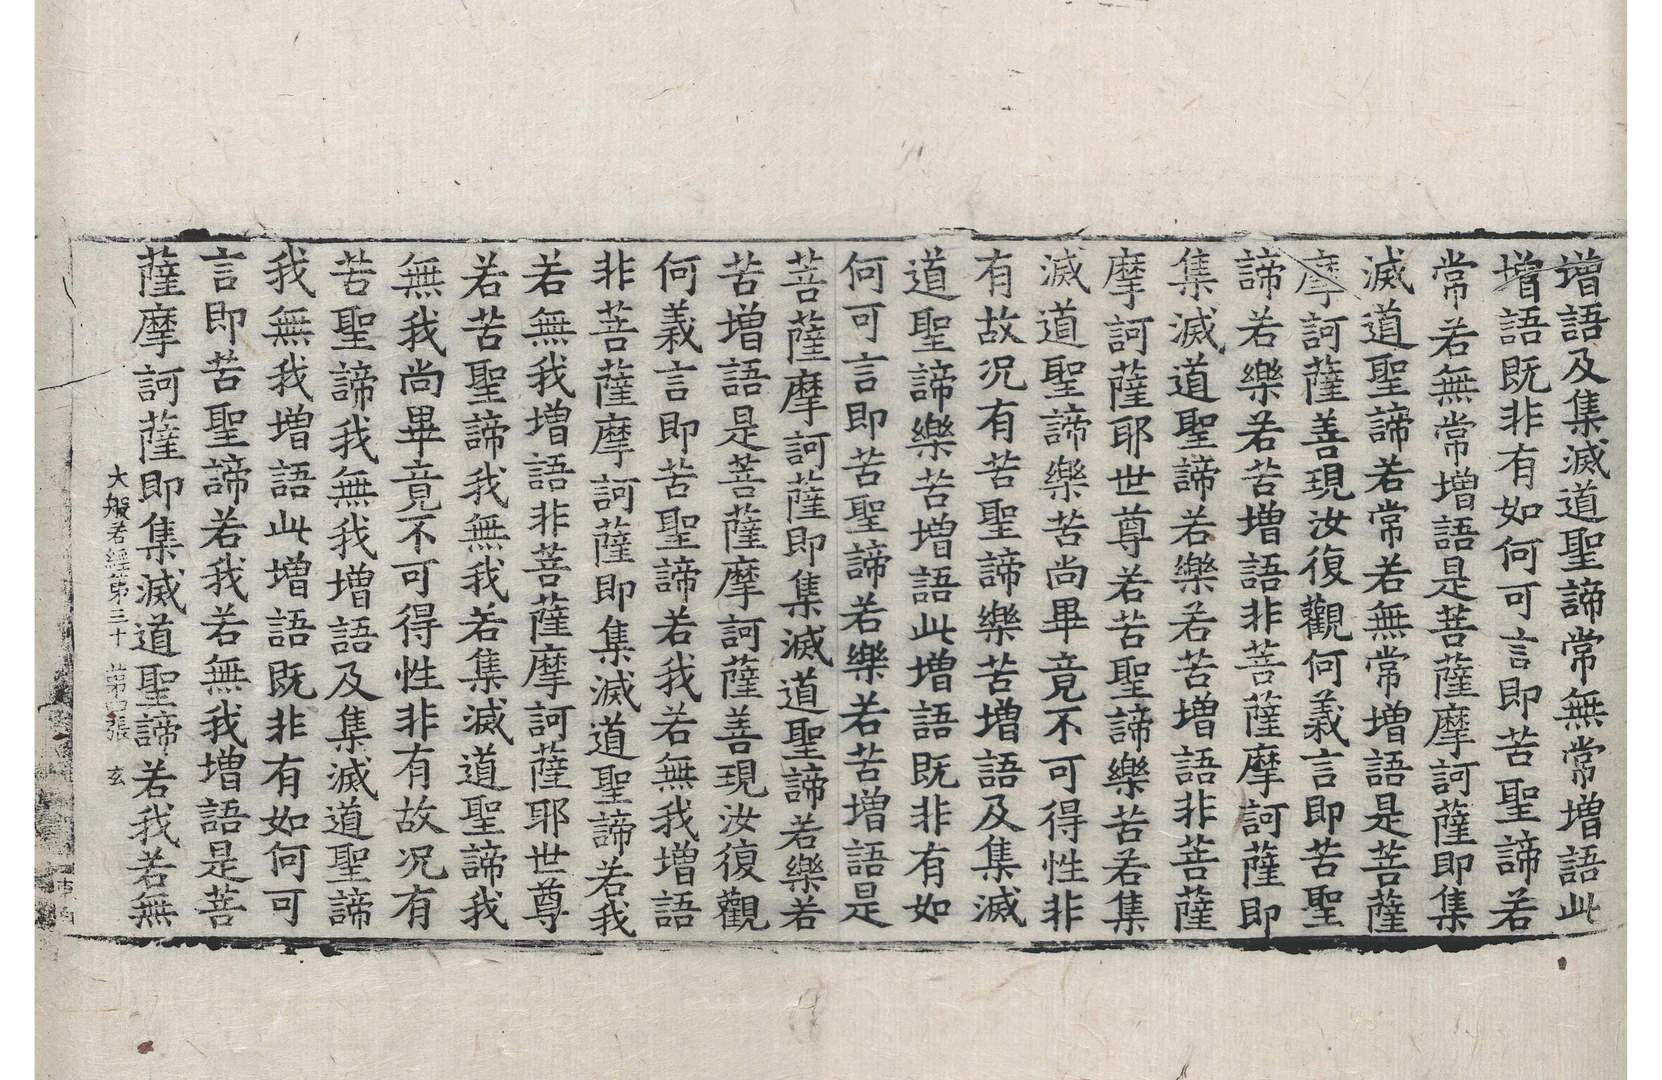 增語及集滅道聖諦常無常增語此
增語既非有如何可言即苦聖諦若
常若無常增語是菩薩摩訶薩即集
滅道聖諦若常若無常增語是菩薩
摩訶薩善現汝復觀何義言即苦聖
諦若樂若苦增語非菩薩摩訶薩即
集滅道聖諦若樂若苦增語非菩薩
摩訶薩耶世尊若苦聖諦樂苦若集
滅道聖諦樂苦尚畢竟不可得性非
有故况有苦聖諦樂苦增語及集滅
道聖諦樂苦增語此增語既非有如
何可言即苦聖諦若樂若苦增語是
菩薩摩訶薩即集滅道聖諦若樂若
苦增語是菩薩摩訶薩善現汝復觀
何義言即苦聖諦若我若無我增語
非菩薩摩訶薩即集滅道聖諦若我
若無我增語非菩薩摩訶薩耶世尊
若苦聖諦我無我若集滅道聖諦我
無我尚畢竟不可得性非有故况有
苦聖諦我無我增語及集滅道聖諦
我無我增語此增語既非有如何可
言即苦聖諦若我若無我增語是菩
薩摩訶薩即集滅道聖諦若我若無
大般若經第三十 第四張 玄